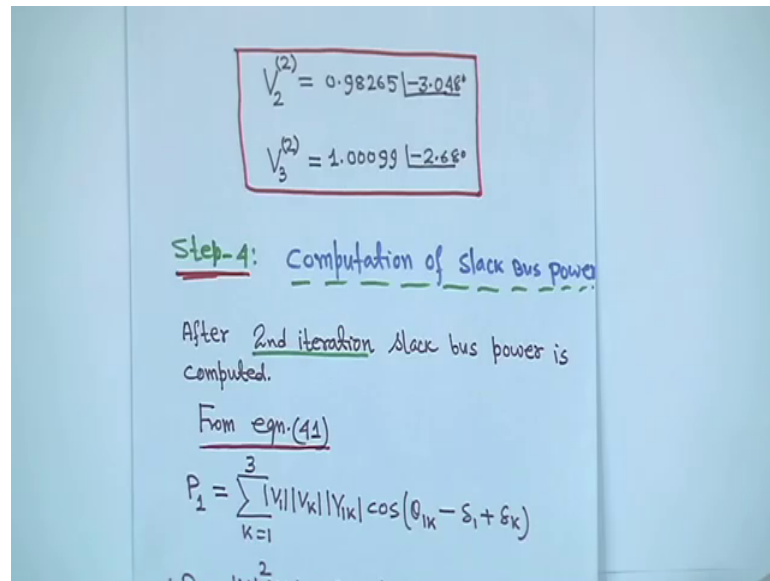 V₂⁽²⁾ = 0.98265 ∠-3.048°
V₃⁽²⁾ = 1.00099 ∠-2.68°
Step-4: Computation of Slack Bus power
After 2nd iteration slack bus power is
computed.
From eqn.(41)
P₁ = ∑_{K=1}^{3} |V₁||V_K||Y_{1K}| cos(θ_{1K} - δ₁ + δ_K)